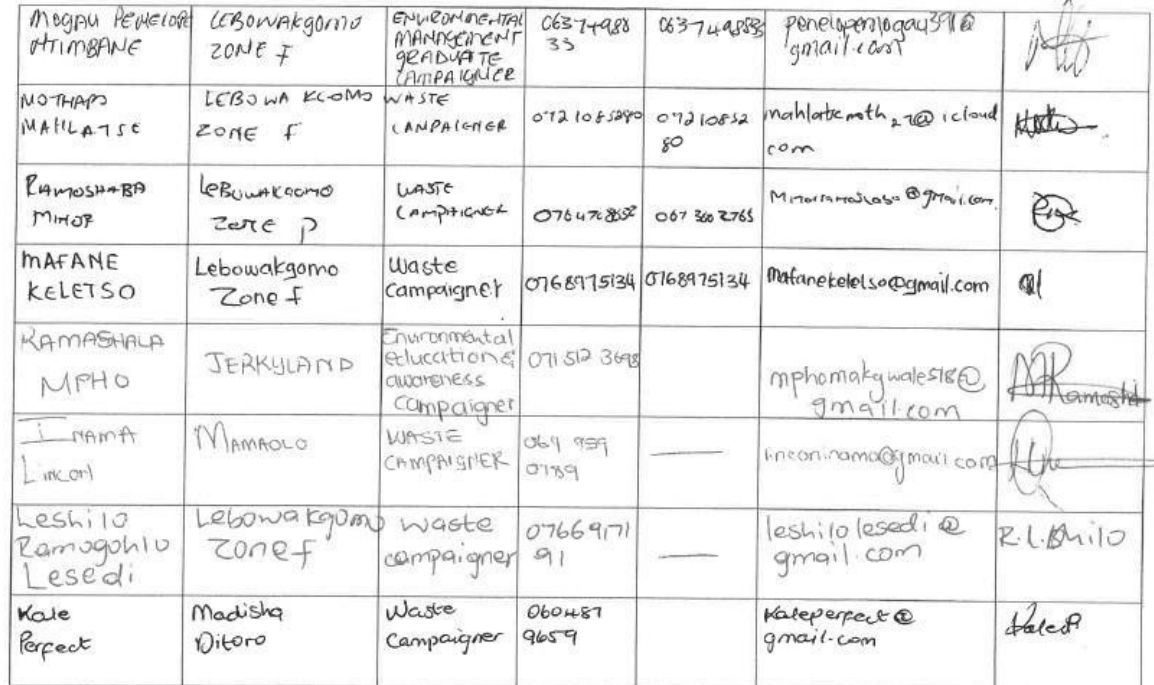 MOGAU PENELOPE
NTIMBANE
LEBOWAKgomo
ZONE F
ENVIRONMENTAL
MANAGEMENT
GRADUATE
CAMPAIGNER
06374988
33
0637498833
penelopemogau391@
gmail.com
MOTHAPO
MAHLATSE
LEBOWA KGOMO
ZONE F
WASTE
CAMPAIGNER
0721085280
07210852
80
mahlatsemoth_27@icloud
com
RAMOSHABA
MINOR
LEBOWAKGOMO
ZONE P
WASTE
CAMPAIGNER
0764768652
067 3602765
@gmail.com
MAFANE
KELETSO
Lebowakgomo
Zone f
Waste
Campaigner
0768975134
0768975134
mafanekeletso@gmail.com
RAMASHALA
MPHO
JERKYLAND
Environmental
education &
awareness
campaigner
071 512 3698
mphomakgwale518@
gmail.com
INAMA
Lincon
MAMAOLO
WASTE
CAMPAIGNER
069 959
0789
linconinama@gmail.com
Leshilo
Ramogohlo
Lesedi
Lebowakgomo
zone f
waste
campaigner
07669171
91
leshilolesedi@
gmail.com
R.L.Shilo
Kale
Perfect
Madisha
Ditoro
Waste
Campaigner
060487
9659
Kaleperfect@
gmail.com
KaleP